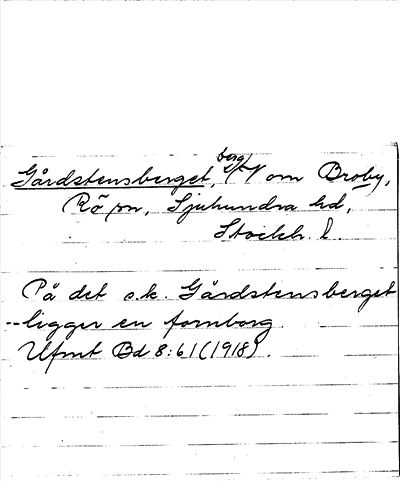 Gårdstensberget, berg V om Broby,
Rö sn, Sjuhundra hd,
Stockh. l.
På det s.k. Gårdstensberget
ligger en fornborg.
Ufmt Bd 8:61(1918).